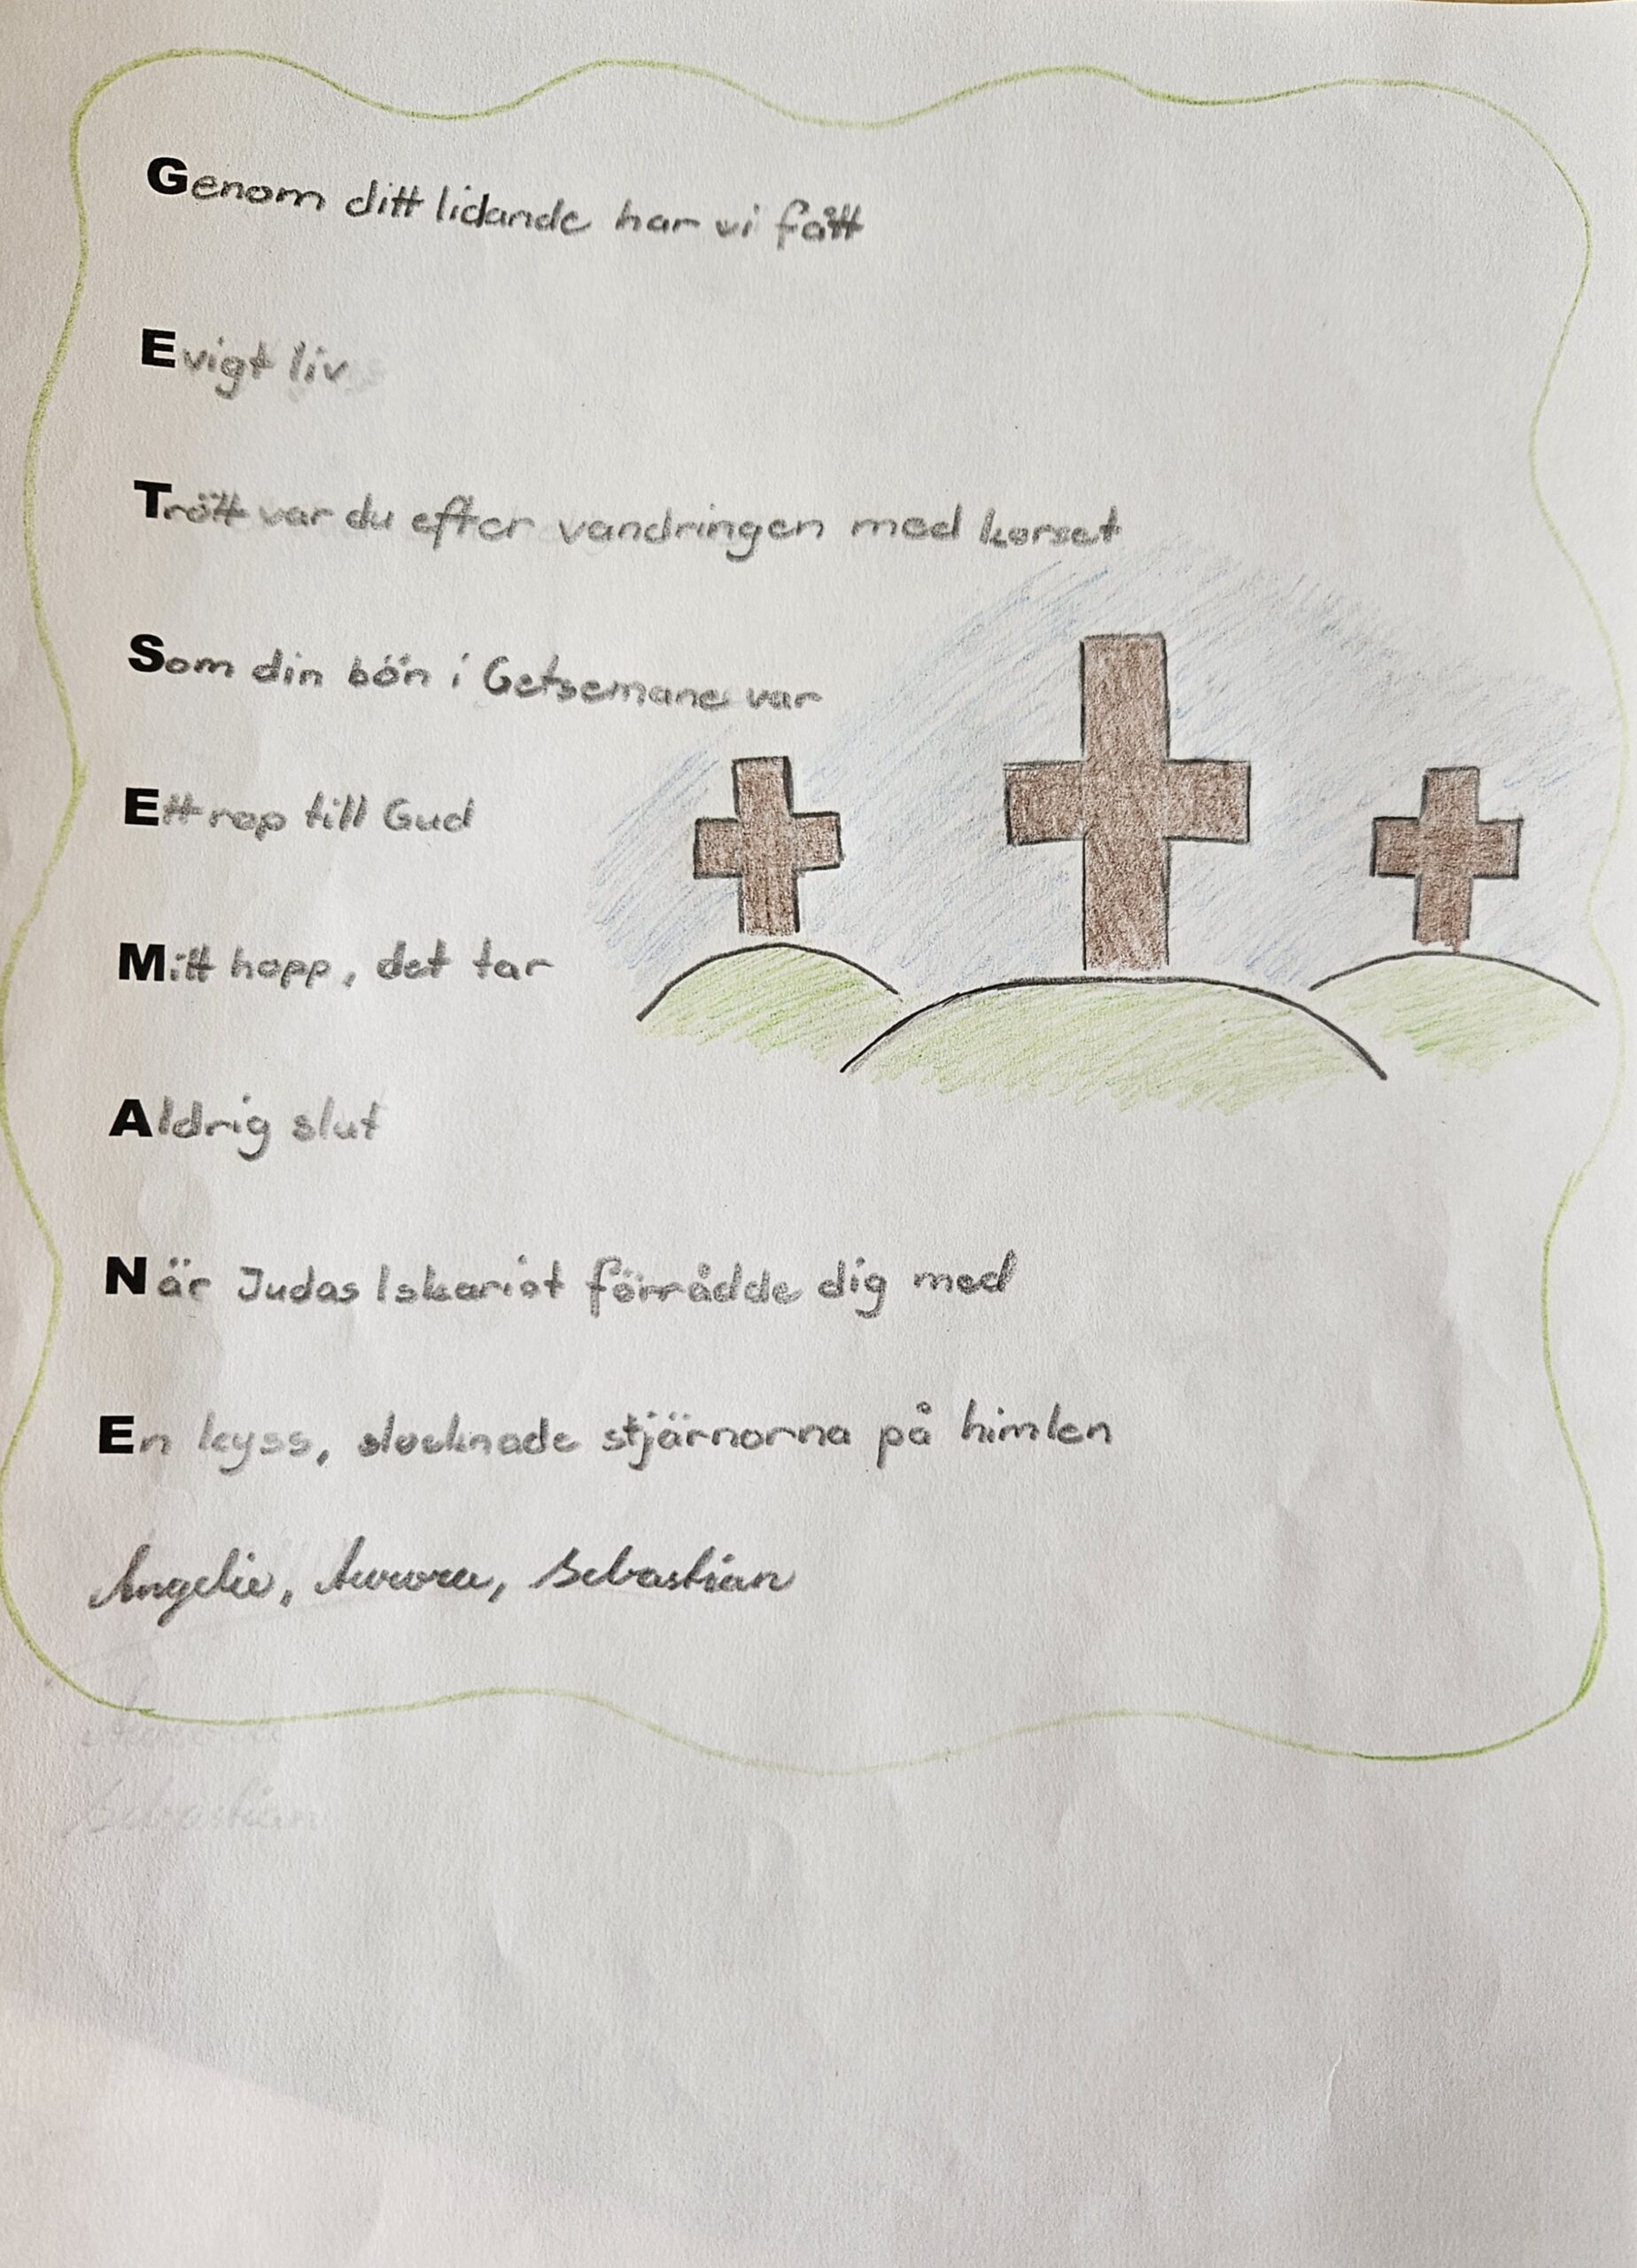 Genom ditt lidande har vi fått
Evigt liv
Trött var du efter vandringen med korset
Som din bön i Getsemane var
Ett rop till Gud
Mitt hopp, det tar
Aldrig slut
När Judas Iskariot förrådde dig med
En kyss, slocknade stjärnorna på himlen
Angelie, Aurora, Sebastian
Aurora
Sebastian